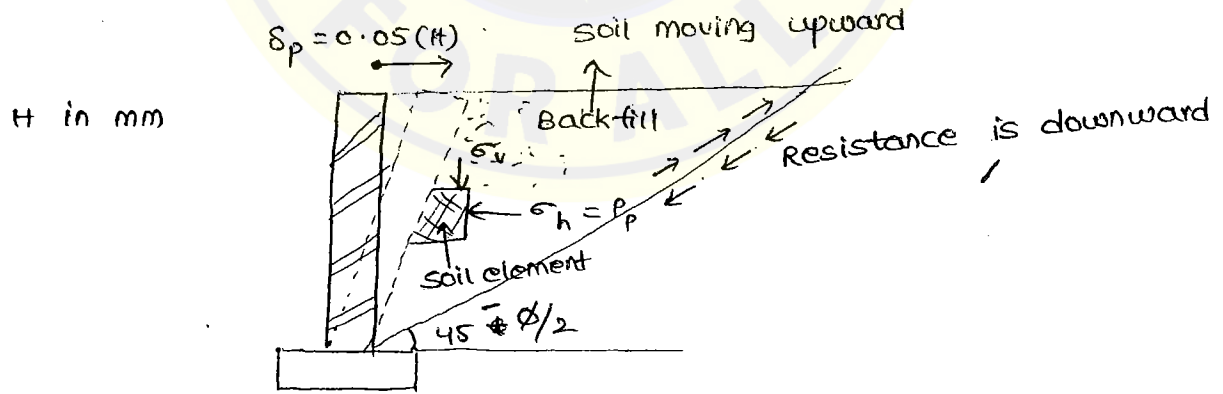 δp = 0.05 (H)
Soil moving upward
H in mm
Backfill
σv
Resistance is downward
σh = Pp
Soil element
45 - Ø/2